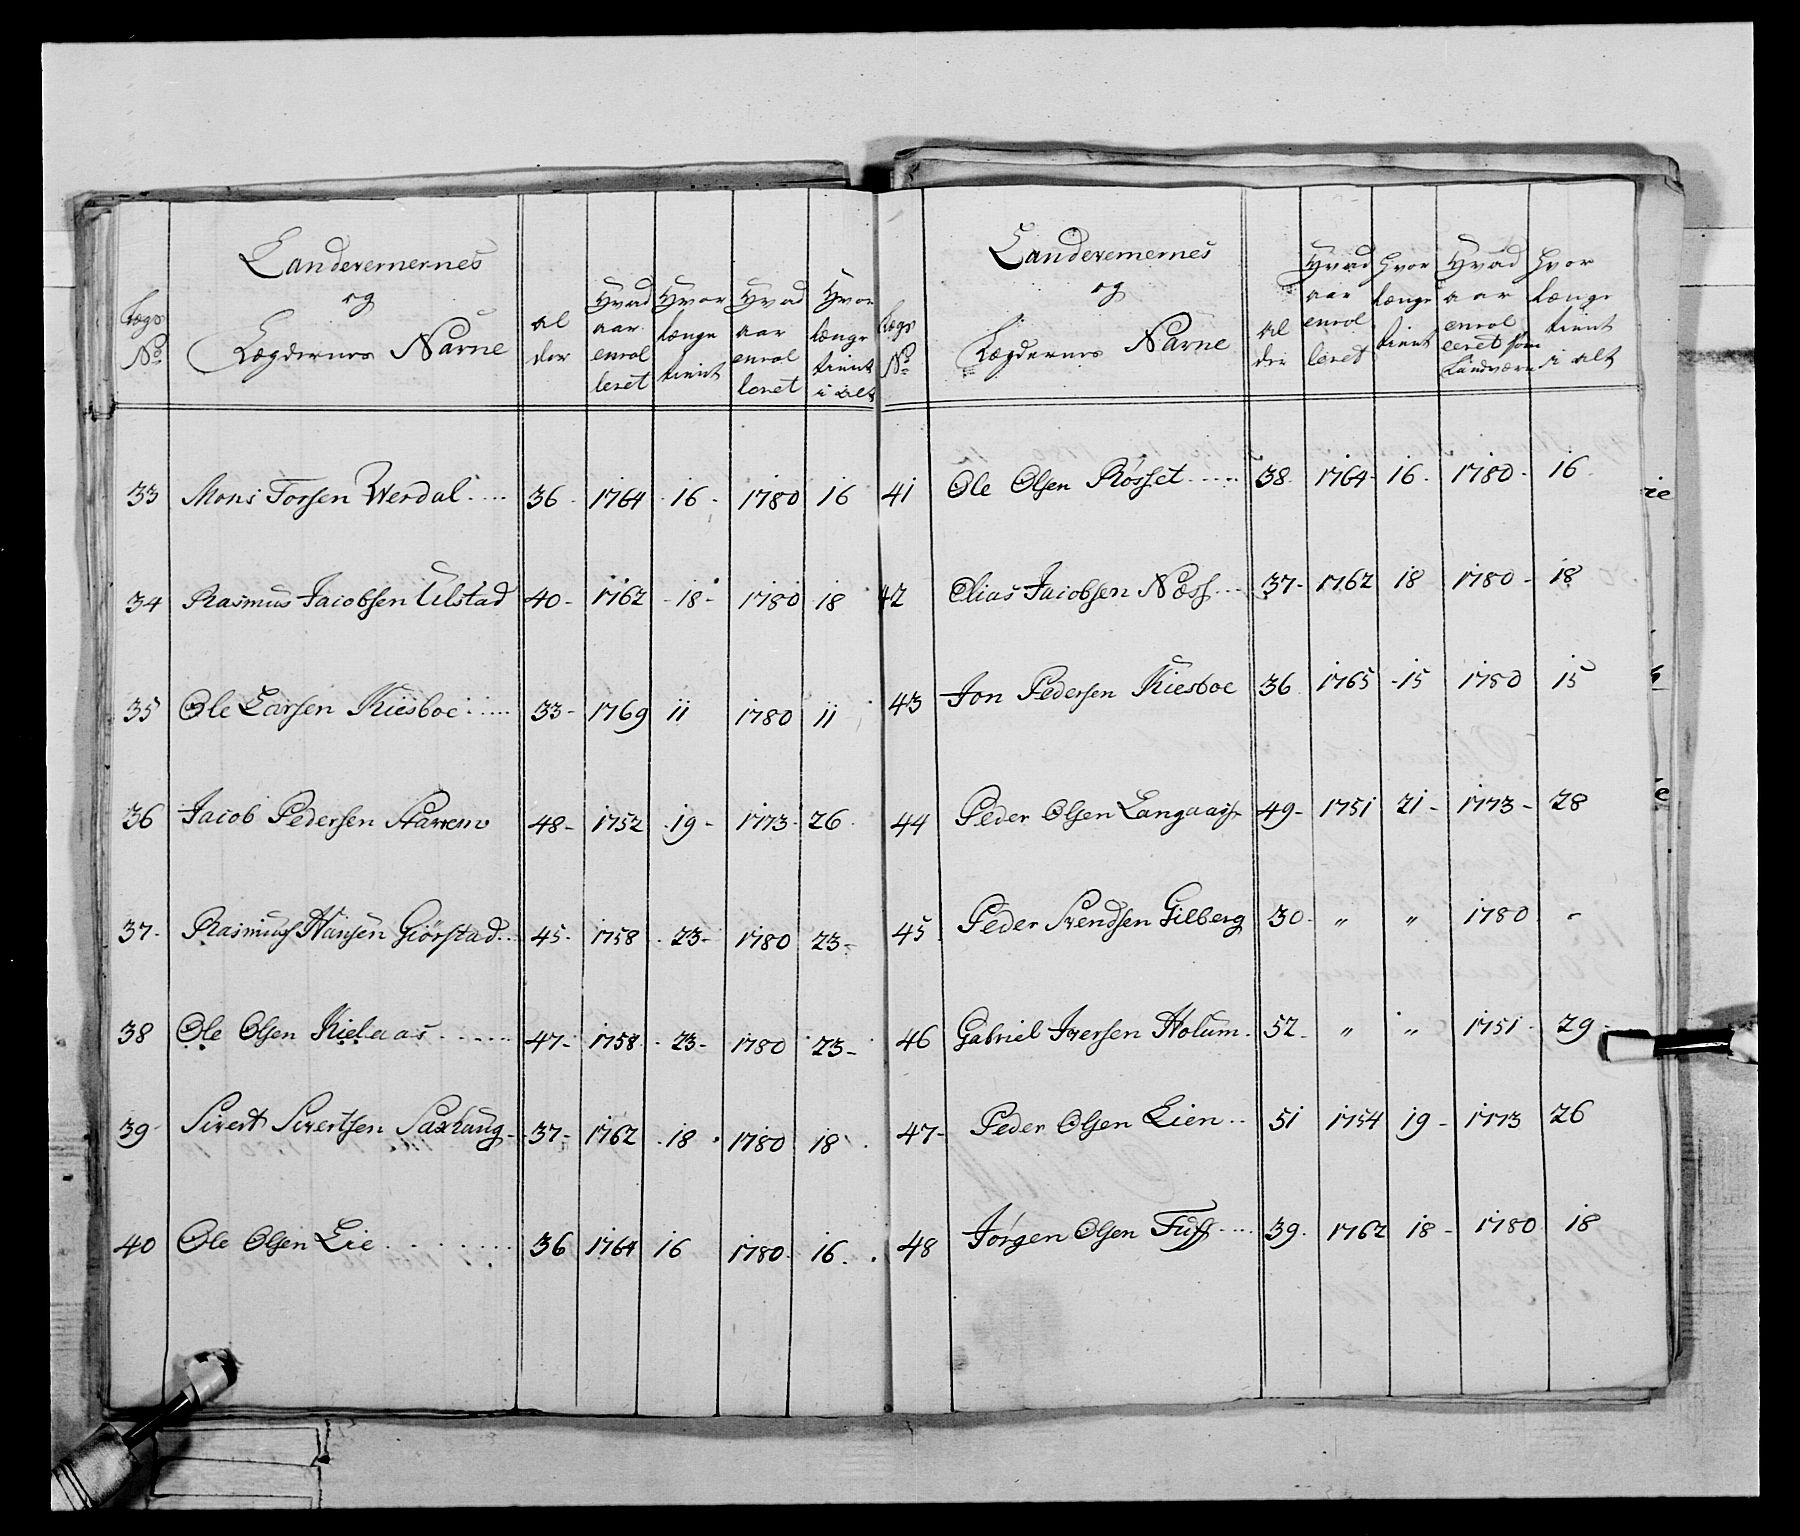 Landevernernes
og
Lægdernes Navne
Lægs
No
al
der
Hvad
aar
enrol
leret
Hvor
længe
tient
Hvad
aar
enrol
leret
Hvor
længe
tient
i alt
33 Mons Torsen Werdal 36 1764 16 1780 16
34 Rasmus Jacobsen Ulstad 40 1762 18 1780 18
35 Ole Larsen Kiesboe 33 1769 11 1780 11
36 Jacob Pedersen Starrem 48 1752 19 1773 26
37 Rasmus Hansen Giørstad 45 1758 23 1780 23
38 Ole Olsen Kielaas 47 1758 23 1780 23
39 Sivert Sivertsen Saxhaug 37 1762 18 1780 18
40 Ole Olsen Lie 36 1764 16 1780 16
Landevernernes
og
Lægdernes Navne
Lægs
No
al
der
Hvad
aar
enrol
leret
Hvor
længe
tient
Hvad
aar
enrol
leret som
Landværn
Hvor
længe
tient
i alt
41 Ole Olsen Røsset 38 1764 16 1780 16
42 Elias Jacobsen Næss 37 1762 18 1780 18
43 Jon Pedersen Kiesboe 36 1765 15 1780 15
44 Peder Olsen Langaas 49 1751 21 1773 28
45 Peder Svendsen Gilberg 30 " " 1780 "
46 Gabriel Iversen Holum 52 " " 1751 29
47 Peder Olsen Lien 51 1754 19 1773 26
48 Jørgen Olsen Tuff 39 1762 18 1780 18